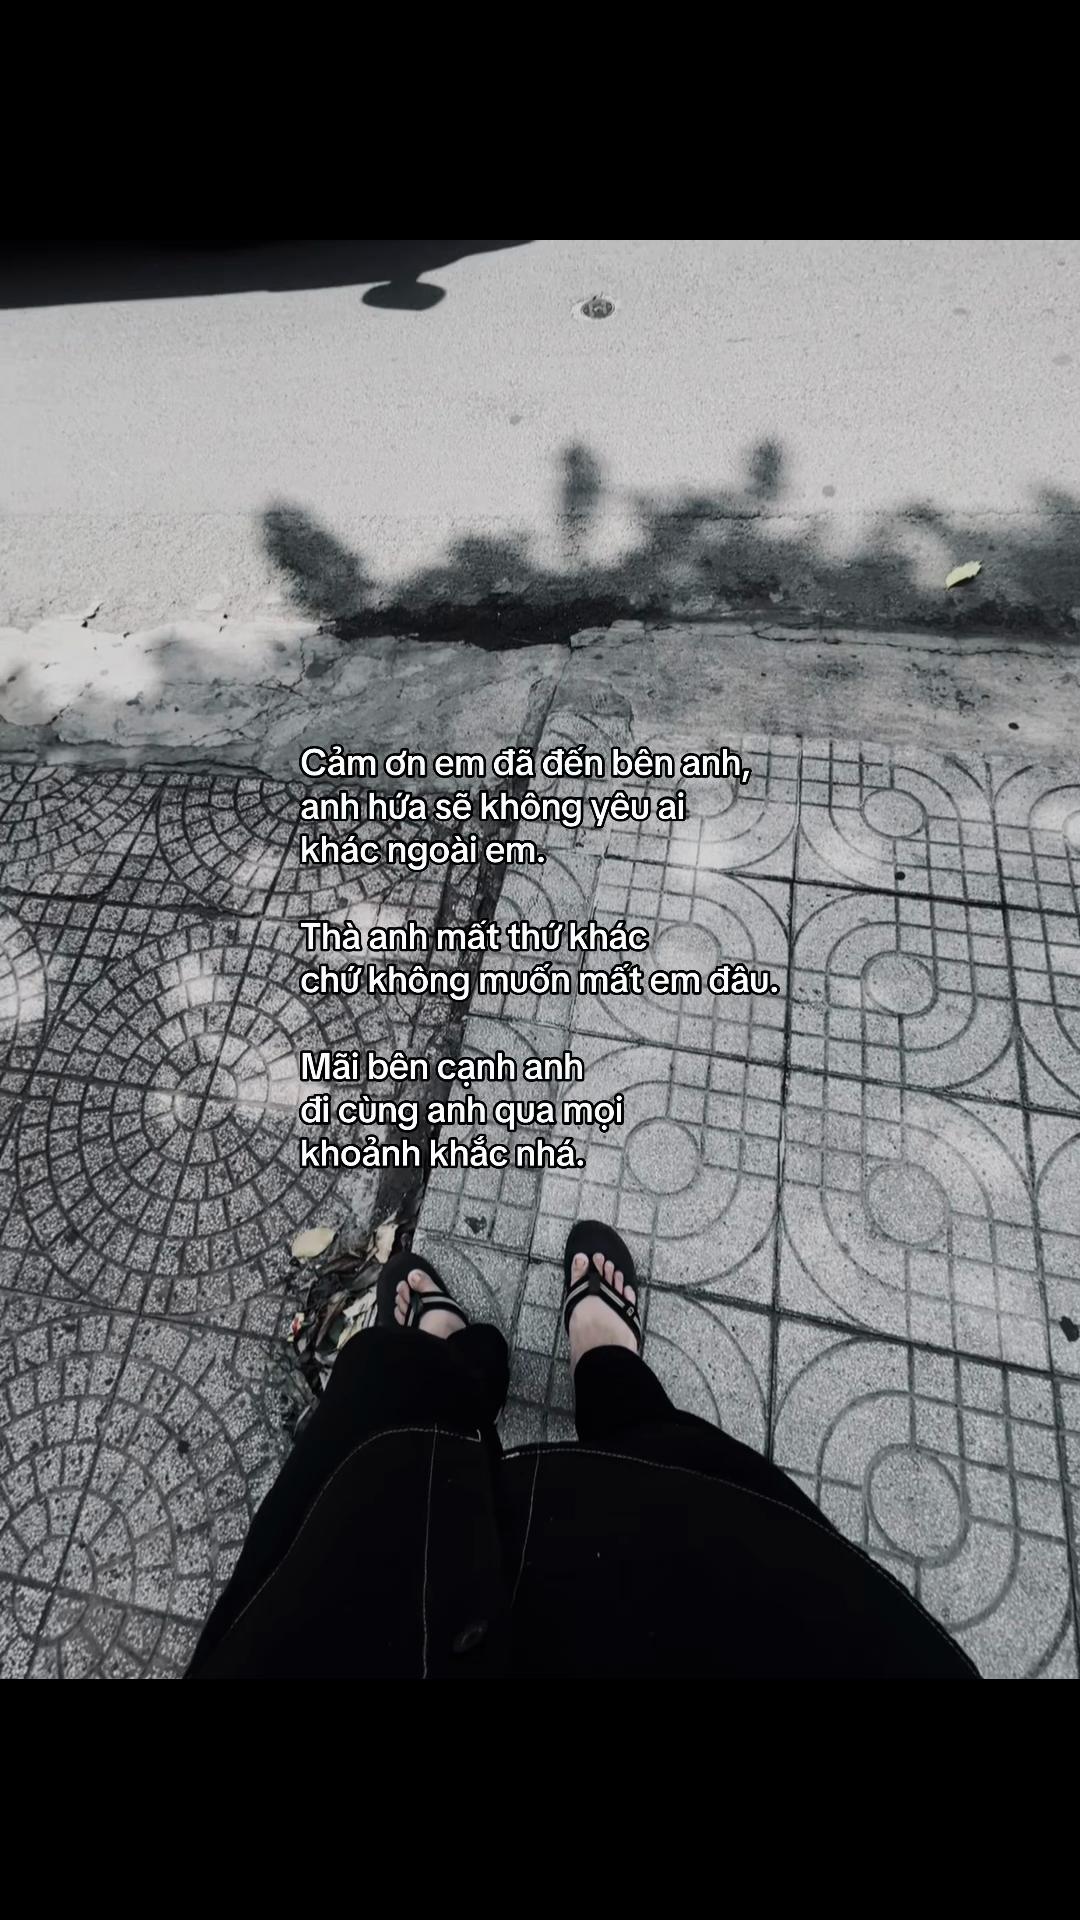 Cảm ơn em đã đến bên anh,
anh hứa sẽ không yêu ai
khác ngoài em.
Thà anh mất thứ khác
chứ không muốn mất em đâu.
Mãi bên cạnh anh
đi cùng anh qua mọi
khoảnh khắc nhá.